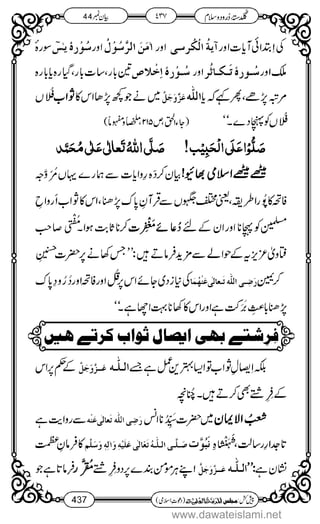 گلدستۂ درود و سلام ٤٣٧ بیان نمبر 44
کی ابتدائی آیات اور آیۃُ الْکُرسی اور اٰمَنَ الرَّسُوْلُ اور سُوْرَۂ یٰسٓ سورۂ
ملک اور سُوْرَۂ تَکاثُر اور سُوْرَۂ اِخلاص تین بار، سات بار، گیارہ بار یا بارہ
مرتبہ پڑھے، پھر کہے کہ یااللّٰہ عَزَّوَجَلَّ! میں نے جو کچھ پڑھا اس کا ثواب فُلاں
فُلاں کو پہنچا دے۔“
صَلُّوْا عَلَی الْحَبِیْب! صَلَّی اللّٰہُ تَعَالٰی عَلٰی مُحَمَّد
میٹھے میٹھے اسلامی بھائیو! بیان کردہ روایات سے ہمارے یہاں مُرَوَّجَہ
فاتحہ کا پورا طریقہ، یعنی مختلف جگہوں سے قرآنِ پاک پڑھنا، اس کا ثواب ارواحِ
مسلمین کو پہنچانا اور ان کے لئے دُعائے مَغْفِرَت کرنا ثابت ہوا۔ مفتی صاحب
فتاویٰ عزیزیہ کے حوالے سے مزید فرماتے ہیں: ”جس کھانے پر حضرتِ حسنین
کریمین رَضِیَ اللّٰہُ تَعَالٰی عَنْہُمَا کی نیاز دی جائے اس پر قُل اور فاتحہ اور دُرُود پاک
پڑھنا باعثِ برکت ہے اور اس کا کھانا بہت اچھا ہے۔“
فرشتے بھی ایصال ثواب کرتے ہیں
بلکہ ایصالِ ثواب تو ایسا بہترین عمل ہے جسے اللّٰہ عَزَّوَجَلَّ کے حکم سے اس
کے فِرِشتے بھی کرتے ہیں۔ چُنانچہ
شُعَبُ الایمان میں حضرت سیِّدُنا انس رَضِیَ اللّٰہُ تَعَالٰی عَنْہُ سے روایت ہے
تاجدارِ رسالت، شہنشاہِ نَبُوَّت صَلَّی اللّٰہُ تَعَالٰی عَلَیْہِ وَاٰلِہٖ وَسَلَّم کا فرمانِ عظمت
نشان ہے: ”اللّٰہ عَزَّوَجَلَّ اپنے مؤمن بندے پر دو فرشتے مُقَرَّر فرماتا ہے جو
437 (دعوتِ اسلامی)
www.dawateislami.net